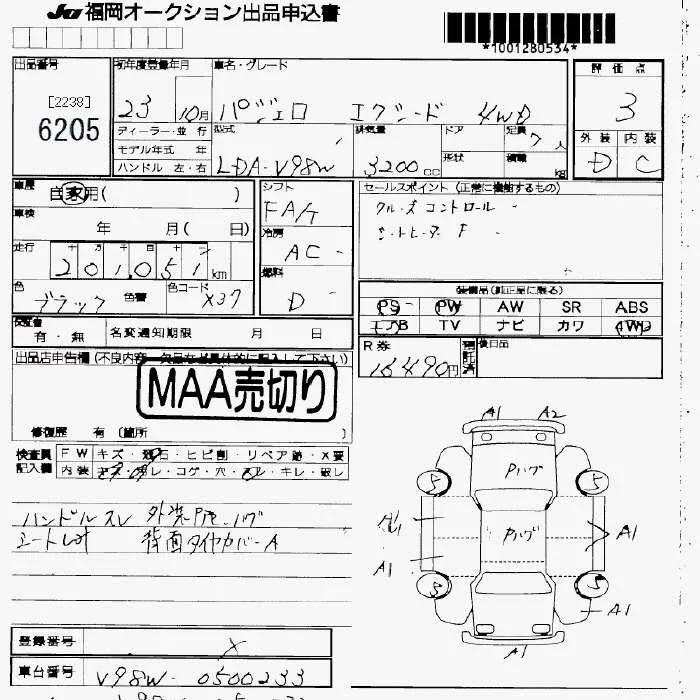 JU 福岡オークション出品申込書
*1001280534*
出品番号
[2238]
6205
初年度登録年月
23 10月
車名・グレード
パジェロ エクシード 4WD
評価点
3
外装 内装
D C
ディーラー・並行
モデル年式 年
ハンドル 左・右
型式
LDA-V98W
排気量
3200cc
ドア
形状
定員
7人
積載
kg
車歴
自家用( )
車検
年 月( 日)
走行
十 万 千 百 十 一
201,051km
色
ブラック 色替
色コード
X37
シフト
FA/T
冷房
AC -
燃料
D -
セールスポイント (正常に機能するもの)
クルーズコントロール -
シートヒーター F -
装備品(純正品に限る)
PS PW AW SR ABS
エアB TV ナビ カワ 4WD
保証書
有・無
名変通知期限 月 日
R券
16490円
預託済
後日品
出品店申告欄 (不良内容・欠品など具体的に記入して下さい)
MAA売切り
修復歴 有 (箇所 )
検査員記入欄
FW キズ・飛石・ヒビ割・リペア跡・X要
内装 キズ・汚レ・コゲ・穴・スレ・キレ・破レ
ハンドルスレ 外装凹凸・ハゲ
背面タイヤカバーA
A1 A2
Pハゲ
5 5
Pハゲ
A1
A1
5 5
A1
A1
登録番号
X
車台番号
V98W-0500233